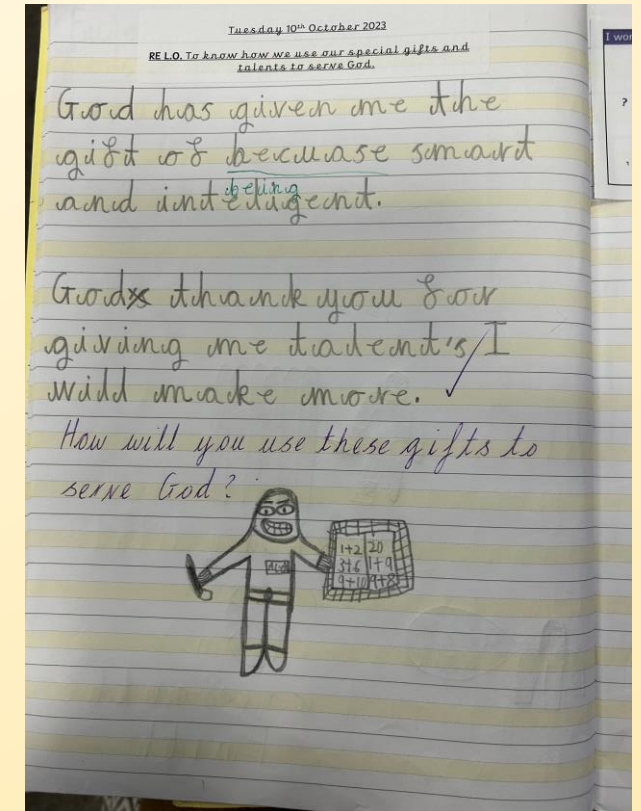 Tuesday 10th October 2023
RE L.O. To know how we use our special gifts and
talents to serve God.
God has given me the
gift of becuase smart
being
and inteligent.
God thank you for
giving me talent's I
will make more.
How will you use these gifts to
serve God?
1+2 20
3+6 1+9
9+10 9+8
I wor
?